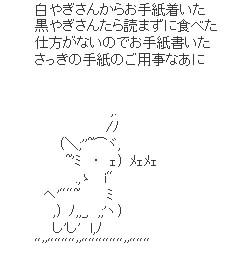 白やぎさんからお手紙着いた
黒やぎさんたら読まずに食べた
仕方がないのでお手紙書いた
さっきの手紙のご用事なあに
ﾒｪﾒｪ